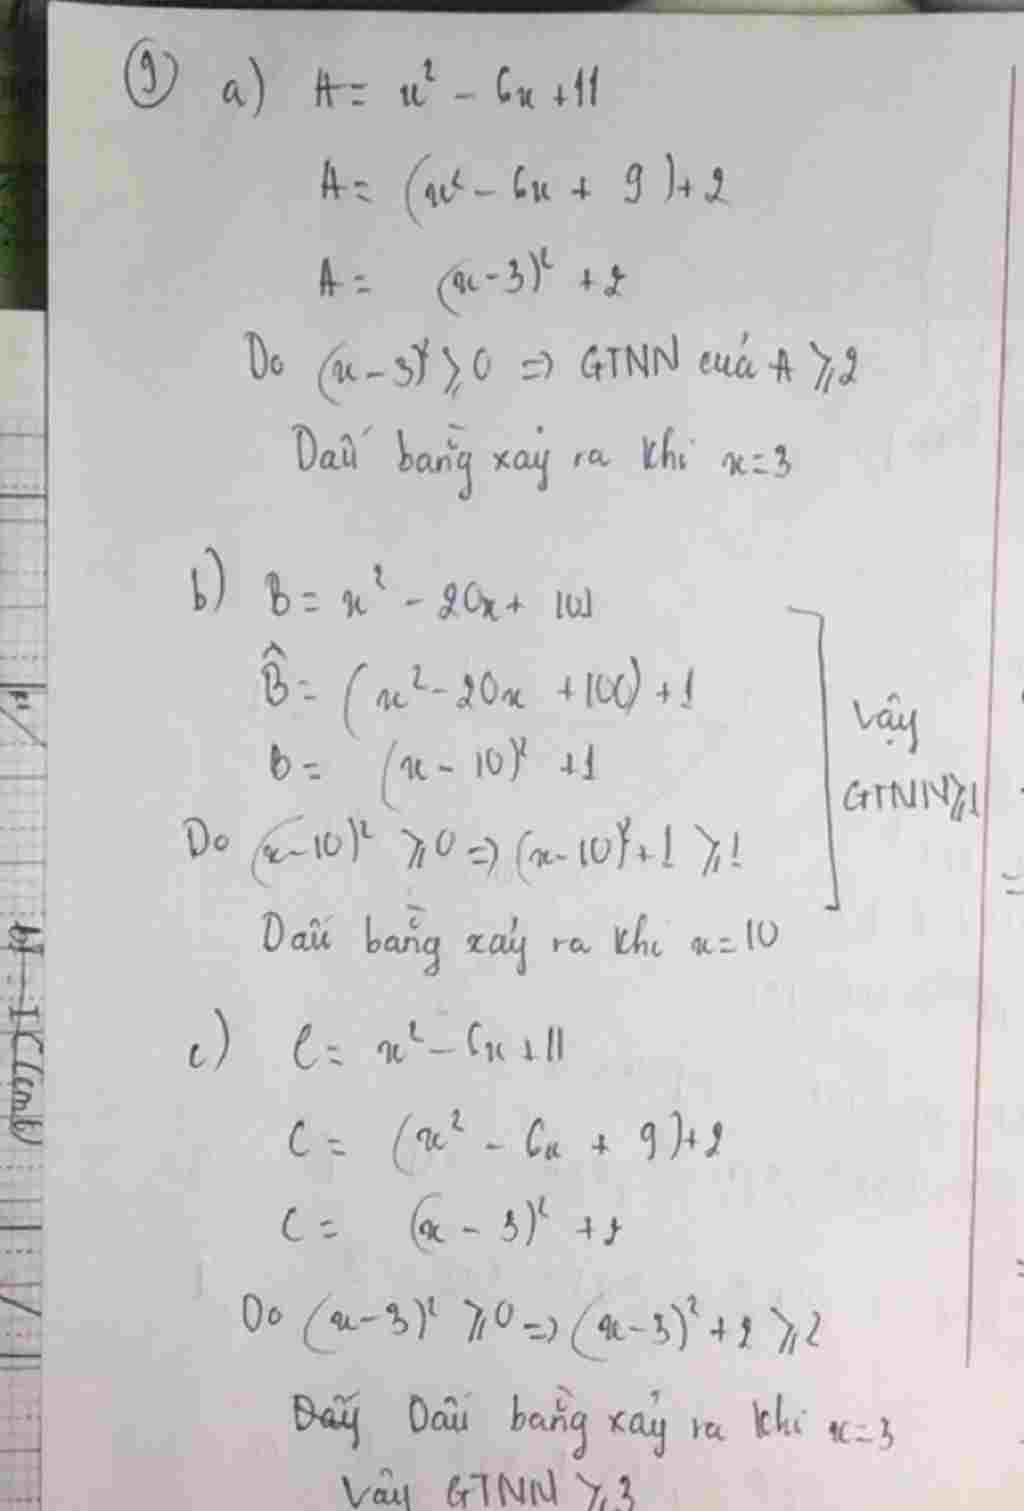 9) a) A = x² - 6x + 11
A = (x² - 6x + 9) + 2
A = (x - 3)² + 2
Do (x - 3)² ≥ 0 => GTNN của A ≥ 2
Dấu bằng xảy ra khi x = 3
b) B = x² - 20x + 101
B = (x² - 20x + 100) + 1
B = (x - 10)² + 1
Do (x - 10)² ≥ 0 => (x - 10)² + 1 ≥ 1
Dấu bằng xảy ra khi x = 10
Vậy
GTNN ≥ 1
c) C = x² - 6x + 11
C = (x² - 6x + 9) + 2
C = (x - 3)² + 2
Do (x - 3)² ≥ 0 => (x - 3)² + 2 ≥ 2
Dấu bằng xảy ra khi x = 3
Vậy GTNN ≥ 3